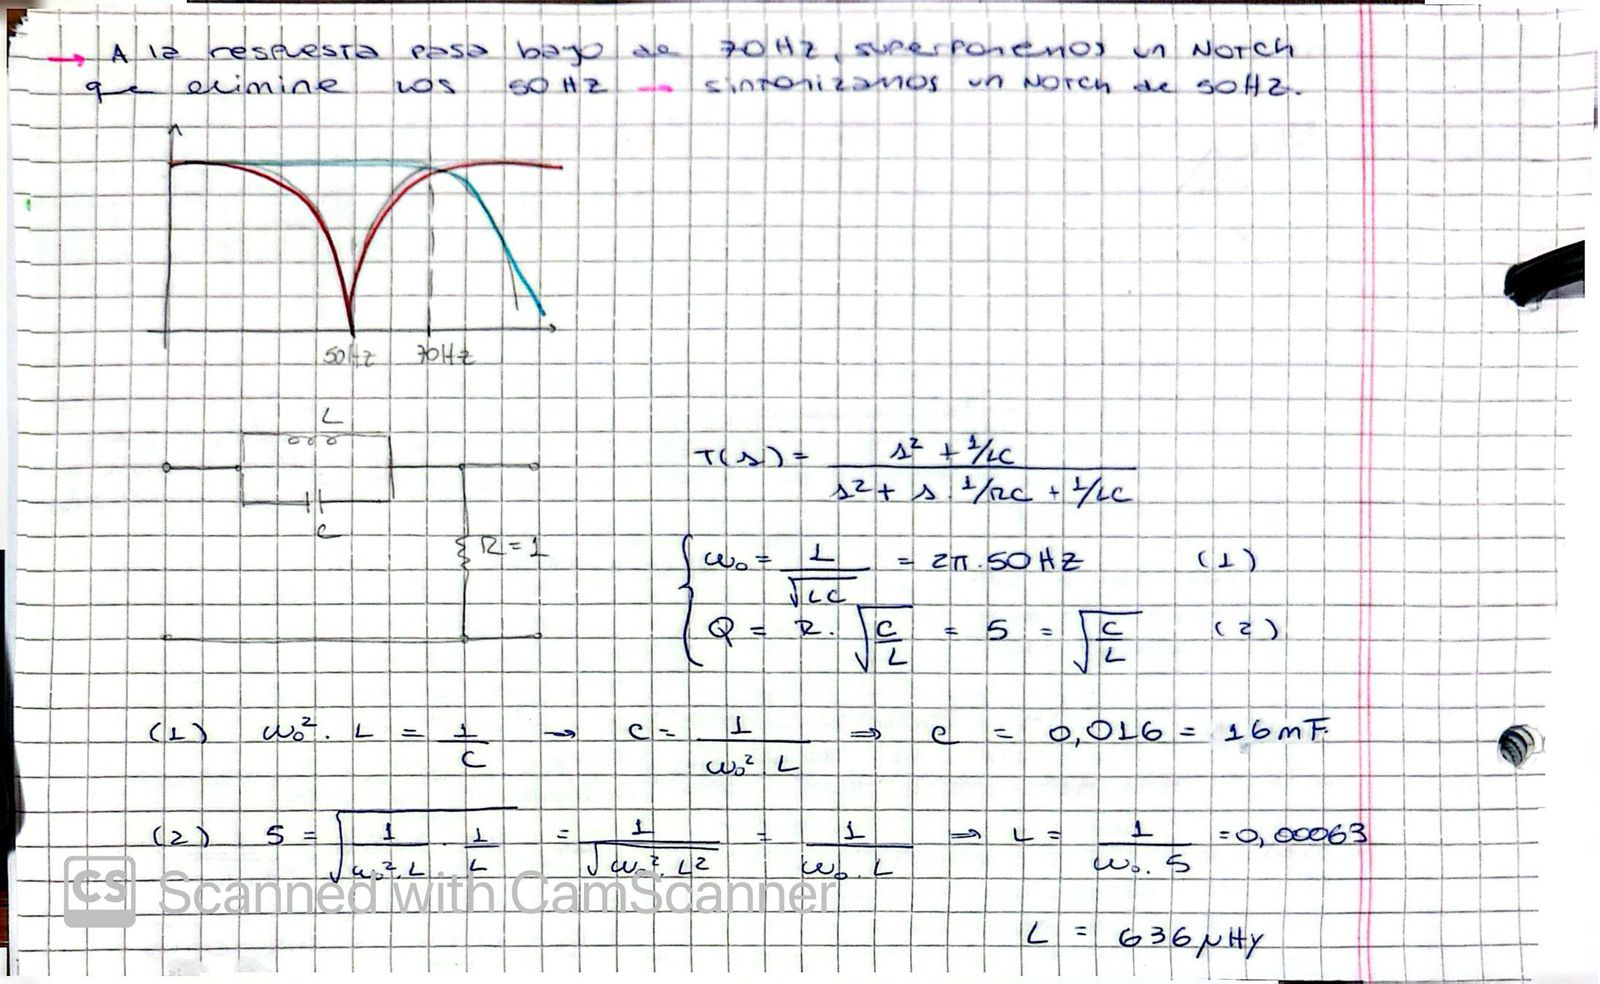 → A la respuesta pasa bajo de 70Hz, superponemos un Notch
que elimine los 50Hz → sintonizamos un Notch de 50Hz.
50Hz 70Hz
L
C
R=1
T(s) = (s² + 1/LC) / (s² + s·1/RC + 1/LC)
ω₀ = 1/√(LC) = 2π·50Hz (1)
Q = R·√(C/L) = 5 = √(C/L) (2)
(1) ω₀²·L = 1/C → C = 1/(ω₀² L) ⇒ C = 0,016 = 16mF
(2) 5 = √(1/(ω₀²·L) · 1/L) = 1/√(ω₀²·L²) = 1/(ω₀·L) ⇒ L = 1/(ω₀·5) = 0,00063
L = 636μHy
CS Scanned with CamScanner